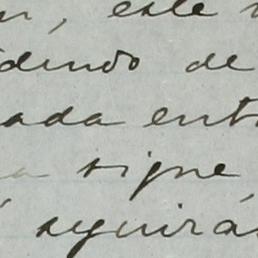 n, este
dindo de
ada ent
a signe
seguirá